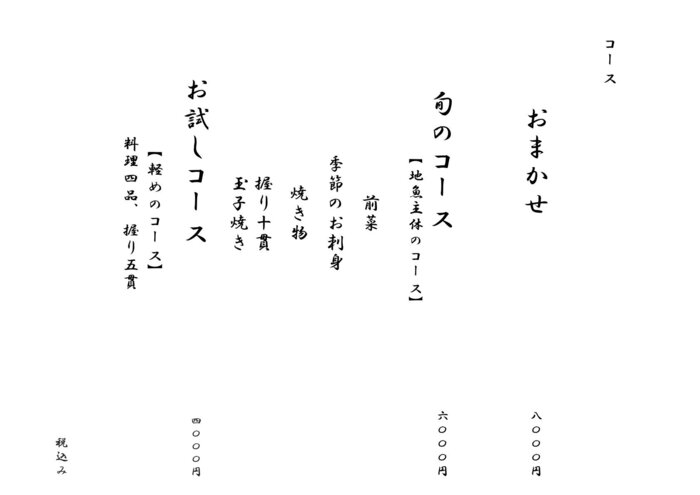 コース
おまかせ
八〇〇〇円
旬のコース
六〇〇〇円
【地魚主体のコース】
前菜
季節のお刺身
焼き物
握り十貫
玉子焼き
お試しコース
四〇〇〇円
【軽めのコース】
料理四品、握り五貫
税込み